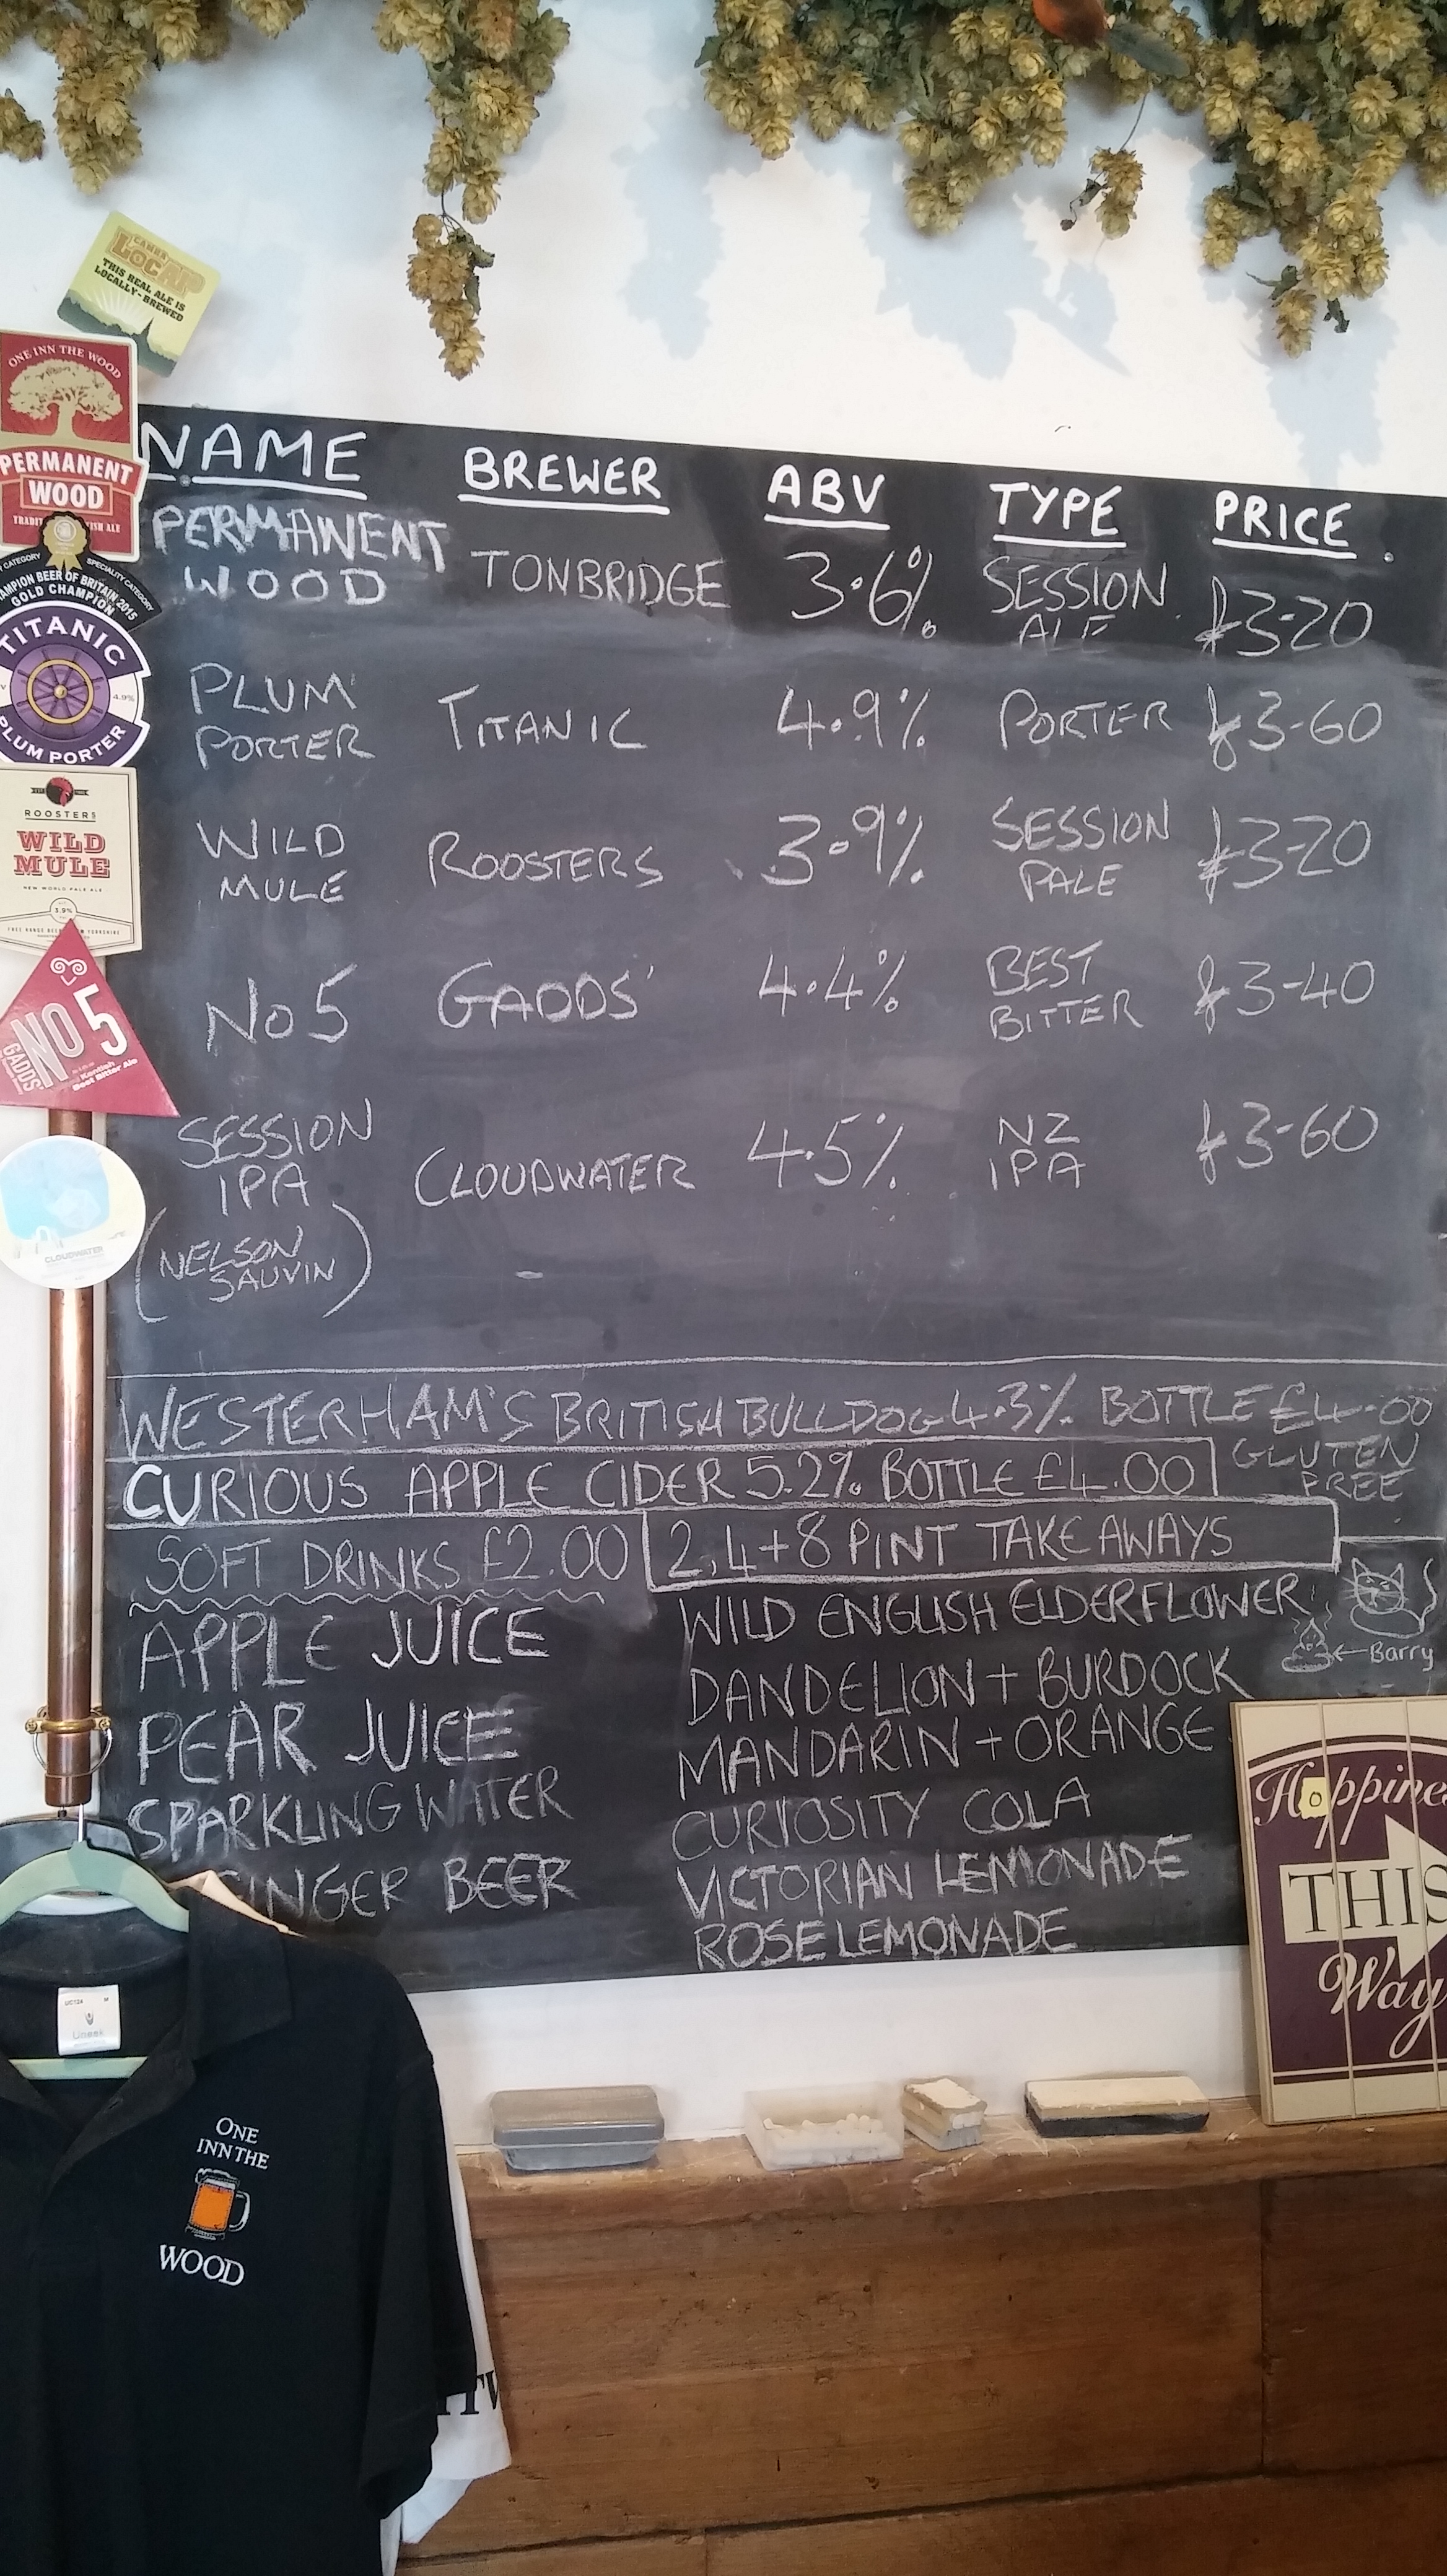 CAMRA
LocAle
THIS REAL ALE IS
LOCALLY-BREWED
ONE INN THE WOOD
PERMANENT
WOOD
CHAMPION BEER OF BRITAIN 2015
GOLD CHAMPION
SPECIALITY CATEGORY
TITANIC
4.9%
PLUM PORTER
ROOSTERS
WILD
MULE
NEW WORLD PALE ALE
3.9%
NO 5
GADDS'
Kentish
Best Bitter Ale
CLOUDWATER
NAME BREWER ABV TYPE PRICE
PERMANENT
WOOD TONBRIDGE 3.6% SESSION
ALE £3-20
PLUM
PORTER TITANIC 4.9% PORTER £3-60
WILD
MULE ROOSTERS 3.9% SESSION
PALE £3-20
No 5 GADDS' 4.4% BEST
BITTER £3-40
SESSION
IPA CLOUDWATER 4.5% NZ
IPA £3-60
(NELSON
SAUVIN)
WESTERHAM'S BRITISH BULLDOG 4.3% BOTTLE £4.00
GLUTEN
FREE
CURIOUS APPLE CIDER 5.2% BOTTLE £4.00
SOFT DRINKS £2.00
2,4+8 PINT TAKE AWAYS
APPLE JUICE
PEAR JUICE
SPARKLING WATER
GINGER BEER
WILD ENGLISH ELDERFLOWER
DANDELION + BURDOCK
MANDARIN + ORANGE
CURIOSITY COLA
VICTORIAN LEMONADE
ROSE LEMONADE
Barry
Hoppines
THIS
Way
UC124 M
Uneek
ONE
INN THE
WOOD